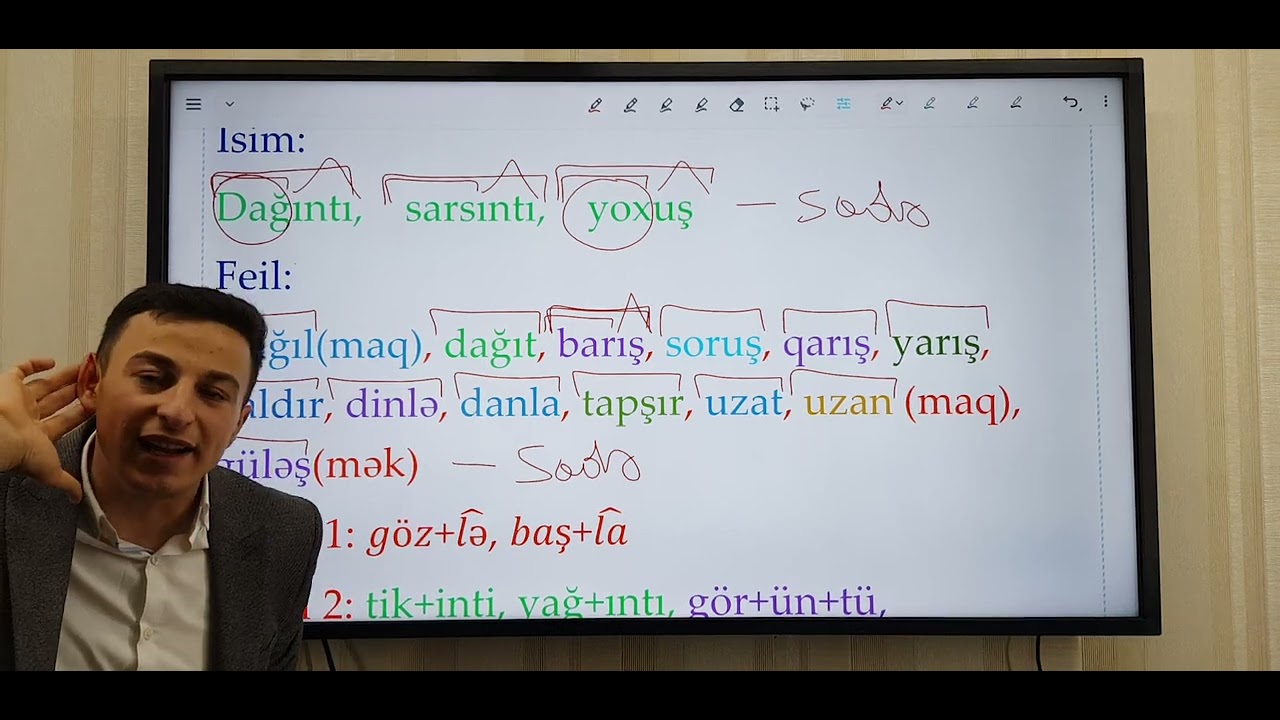 İsim:
Dağıntı, sarsıntı, yoxuş – Sadə
Feil:
ğıl(maq), dağıt, barış, soruş, qarış, yarış,
ldır, dinlə, danla, tapşır, uzat, uzan (maq),
güləş(mək) – Sadə
1: göz+lə, baş+la
2: tik+inti, yağ+ıntı, gör+ün+tü,